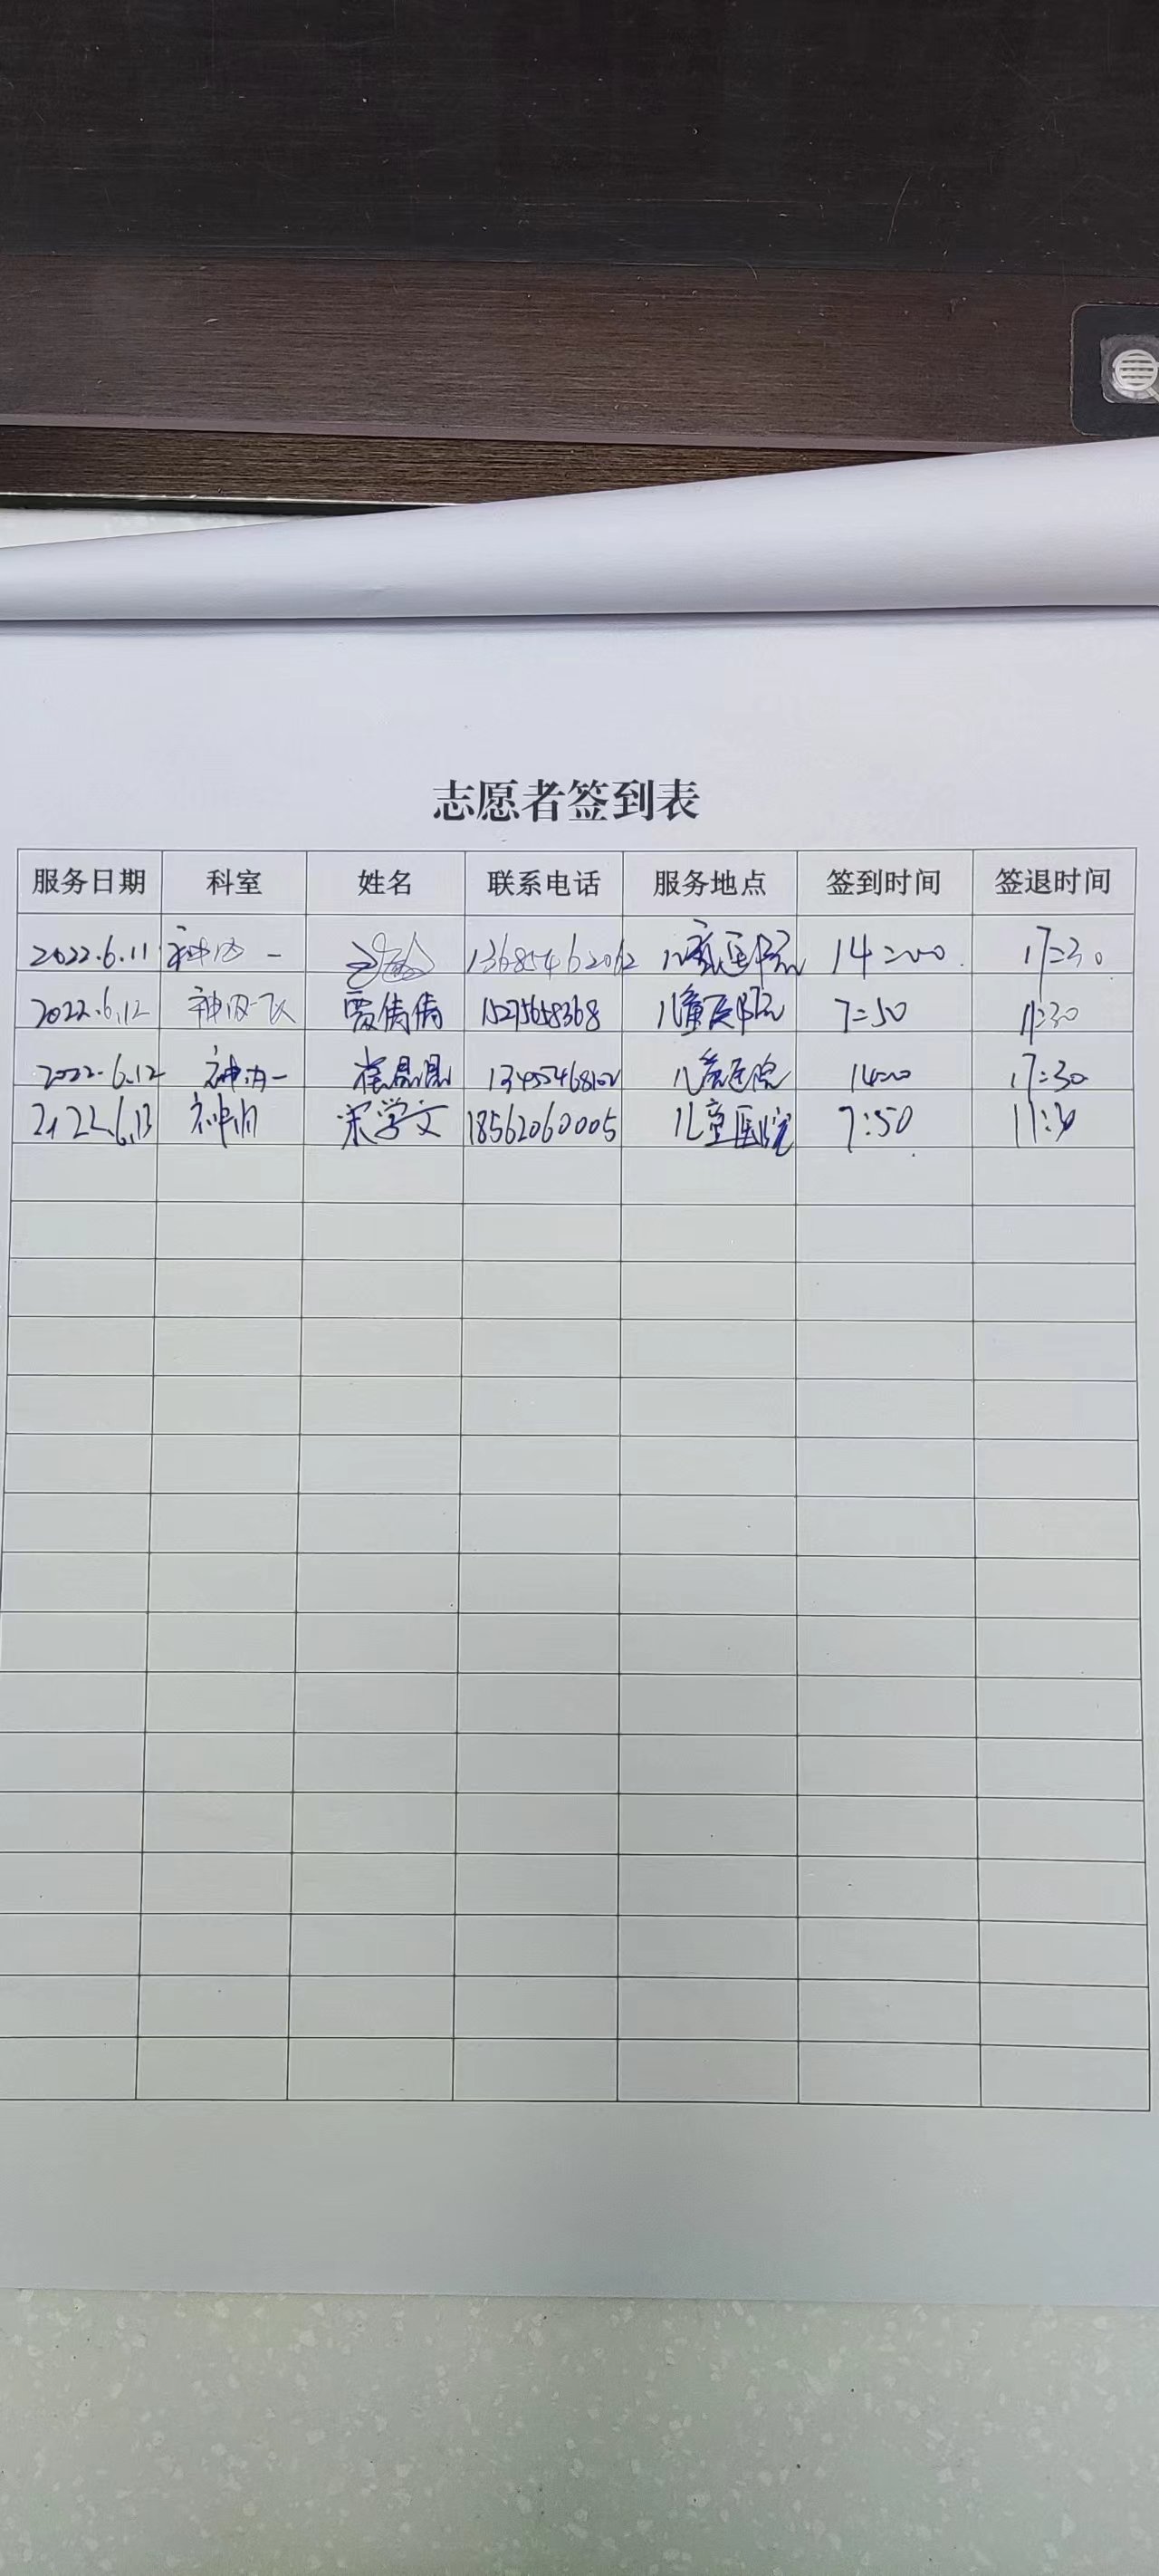 志愿者签到表
服务日期 科室 姓名 联系电话 服务地点 签到时间 签退时间
2022.6.11 神内一 13685462062 儿童医院 14:00 17:30
2022.6.12 神内一区 贾倩倩 15275658368 儿童医院 7:50 11:30
2022.6.12 神内一 儿童医院 14:00 17:30
2022.6.13 神内 宋学文 18562060005 儿童医院 7:50 11:30